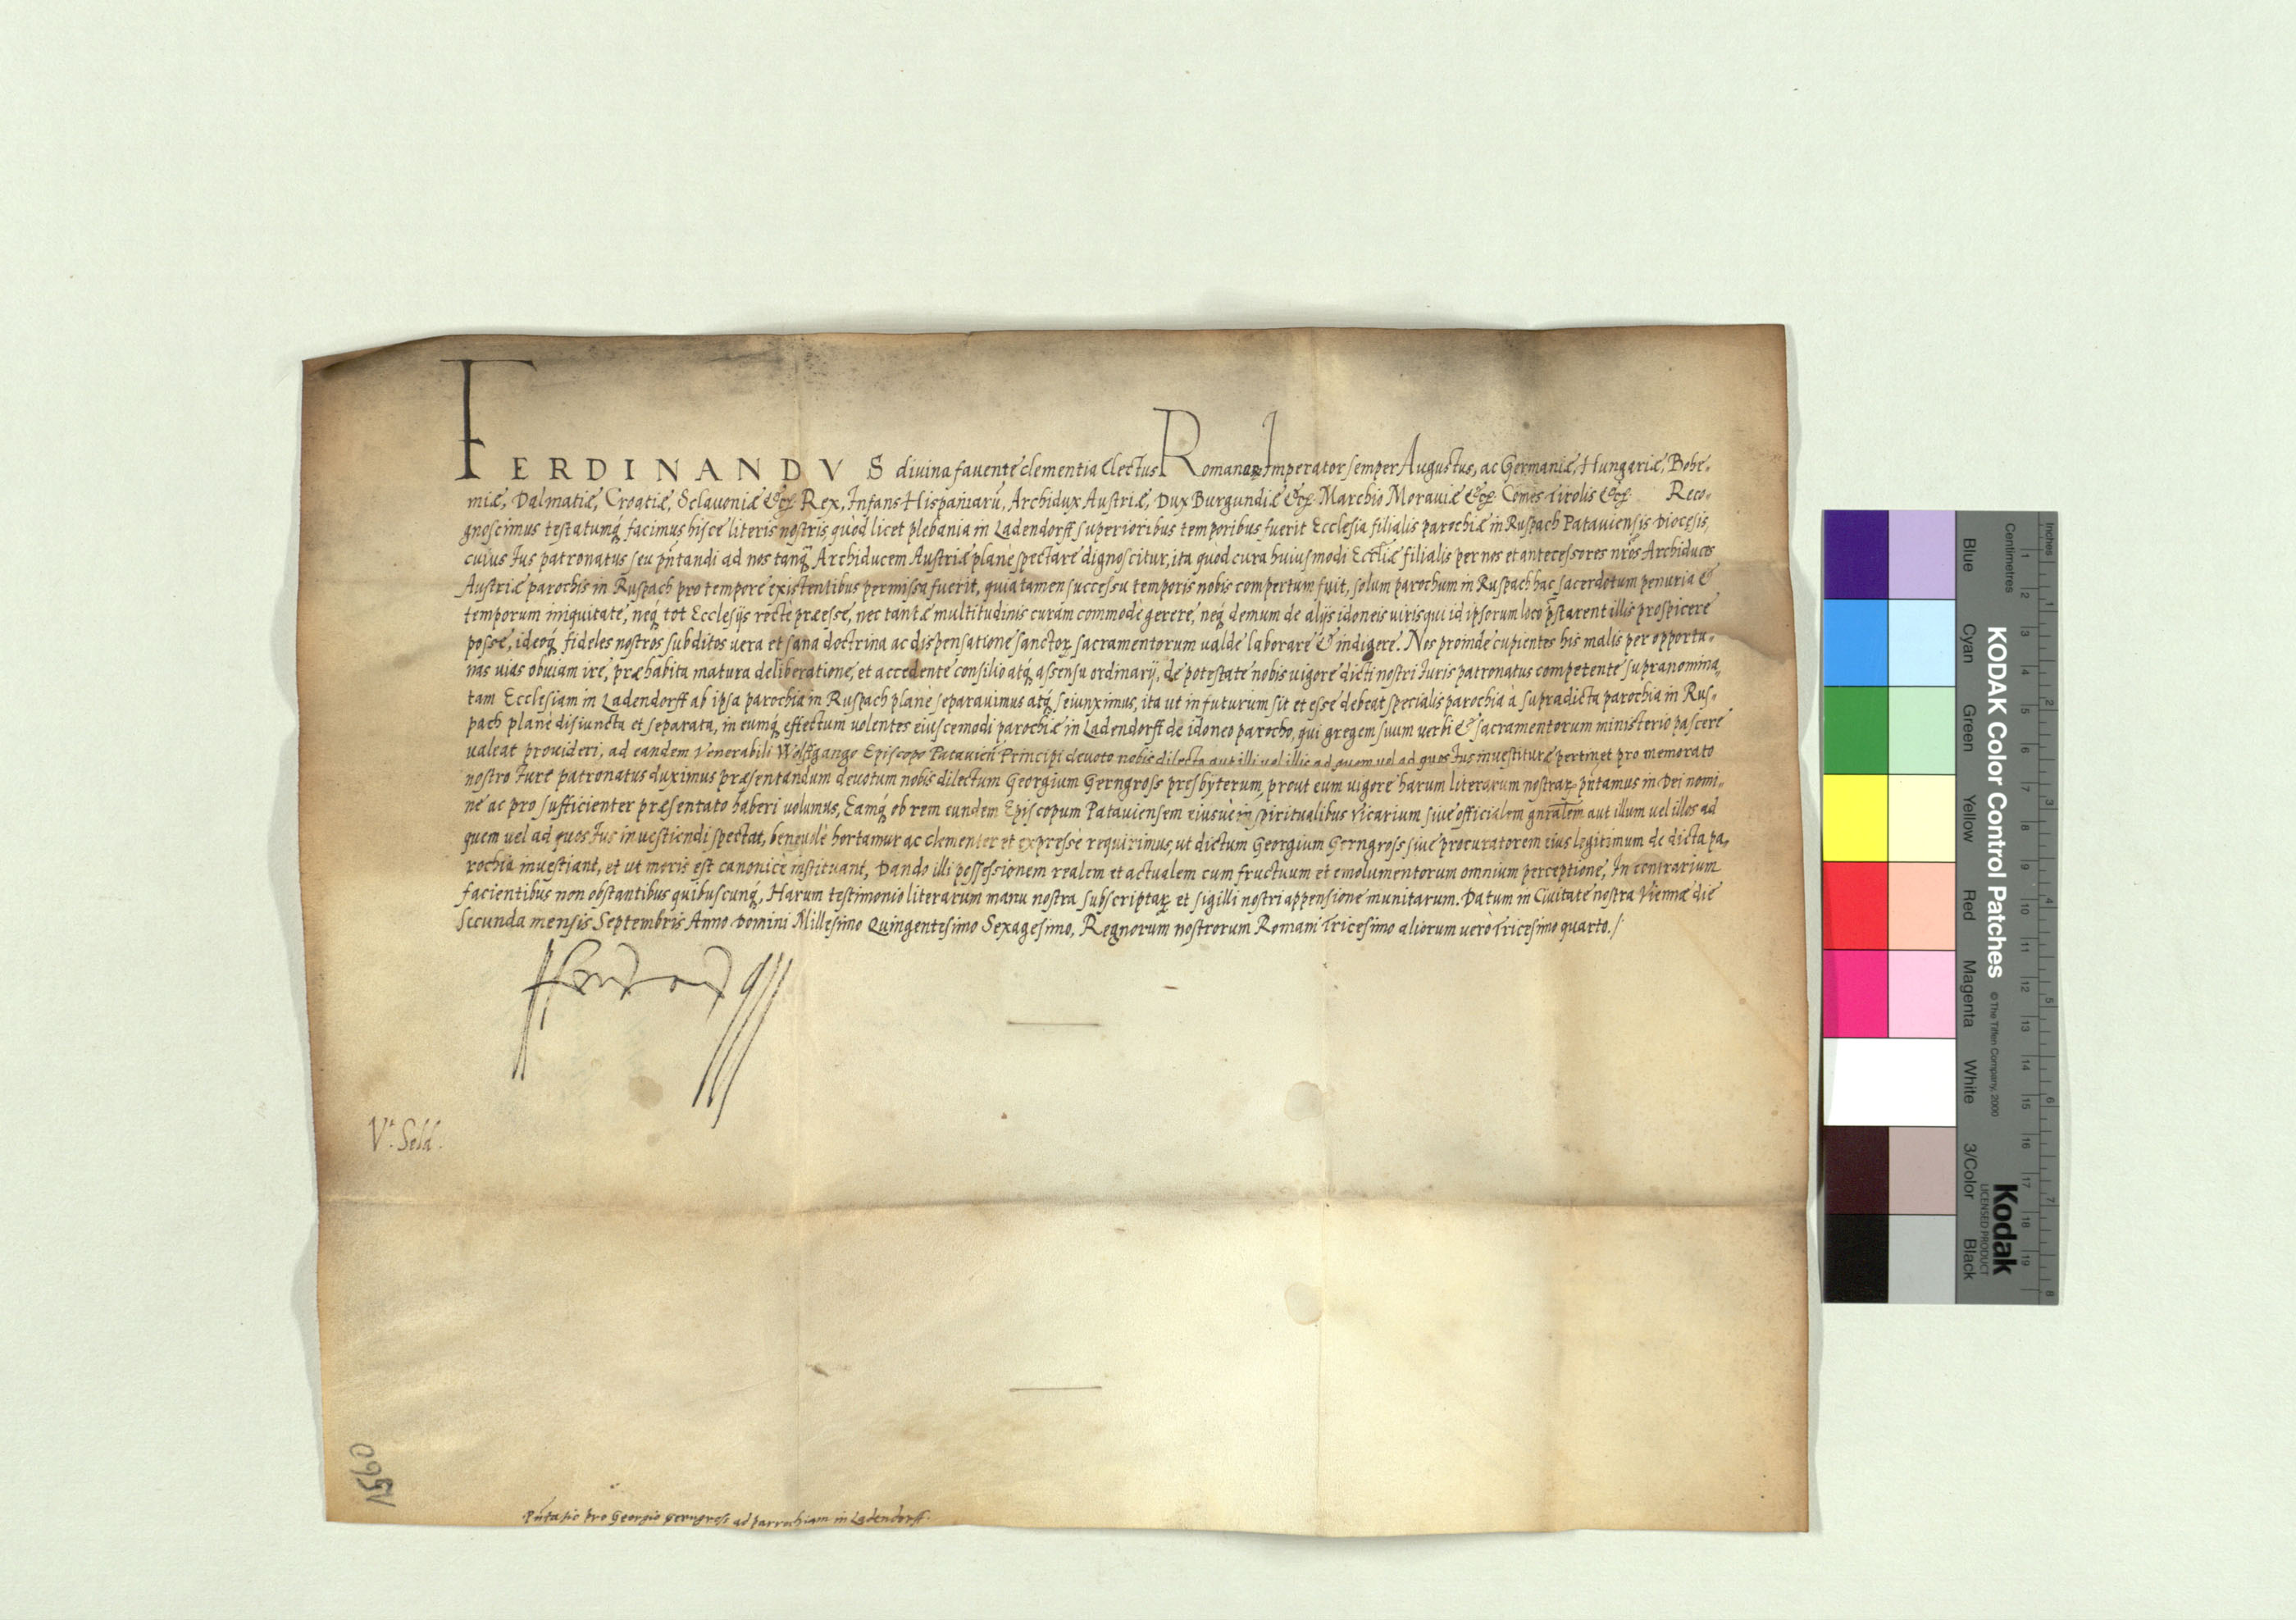 FERDINANDVS divina favente clementia Electus Romanoꝝ Imperator semper Augustus, ac Germaniæ, Hungariæ, Bohe-
miæ, Dalmatiæ, Croatiæ, Sclavoniæ &cꝫ Rex, Infans Hispaniarū, Archidux Austriæ, Dux Burgundiæ &cꝫ Marchio Moraviæ &cꝫ Comes Tirolis &cꝫ Reco-
gnoscimus testatumqꝫ facimus hisce literis nostris, quòd licet plebania in Ladendorff superioribus temporibus fuerit Ecclesia filialis parochiæ in Ruspach Pataviensis Diocesis,
cuius Ius patronatus seu pn̄tandi ad nos tanqꝫ Archiducem Austriæ planè spectare dignoscitur, ita quòd cura huiusmodi Eccliæ filialis per nos et antecessores nrōs Archiduces
Austriæ parochis in Ruspach pro tempore existentibus permissa fuerit, quia tamen successu temporis nobis compertum fuit, solum parochum in Ruspach hac sacerdotum penuria &
temporum iniquitate, neqꝫ tot Ecclesijs rectè præesse, nec tantæ multitudinis curam commodè gerere, neqꝫ demum de alijs idoneis viris qui id ipsorum loco p̄starent illis prospicere
posse, ideoqꝫ fideles nostros subditos vera et sana doctrina ac dispensatione sanctoꝝ sacramentorum valde laborare & indigere. Nos proinde cupientes his malis per opportu-
nas vias obviam ire, præhabita matura deliberatione, et accedente consilio atqꝫ assensu ordinarij, de potestate nobis vigore dicti nostri Iuris patronatus competente supranomina-
tam Ecclesiam in Ladendorff ab ipsa parochia in Ruspach planè separavimus atqꝫ seiunximus, ita ut in futurum sit et esse debeat specialis parochia à supradicta parochia in Rus-
pach planè disiuncta et separata, in eumqꝫ effectum volentes eiuscemodi parochiæ in Ladendorff de idoneo parocho, qui gregem suum verbi & sacramentorum ministerio pascere
valeat provideri, ad eandem Venerabili Wolffgango Episcopo Patavien̄ Principi devoto nobis dilecto aut illi vel illis ad quem vel ad quos Ius investituræ pertinet pro memorato
nostro Iure patronatus duximus præsentandum devotum nobis dilectum Georgium Gerngross presbyterum, prout eum vigore harum literarum nostraꝝ pn̄tamus in Dei nomi-
ne ac pro sufficienter præsentato haberi volumus, Eamqꝫ ob rem eundem Episcopum Pataviensem eiusvè in spiritualibus Vicarium sive officialem gn̄ralem aut illum vel illos ad
quem vel ad quos Ius investiendi spectat, benevolè hortamur ac clementer et expressè requirimus, ut dictum Georgium Gerngross sive procuratorem eius legitimum de dicta pa-
rochia investiant, et ut moris est canonicè instituant, Dando illi possessionem realem et actualem cum fructuum et emolumentorum omnium perceptione, In contrarium
facientibus non obstantibus quibuscunqꝫ, Harum testimonio literarum manu nostra subscriptaꝝ et sigilli nostri appensione munitarum. Datum in Civitate nostra Viennæ die
Secunda mensis Septembris Anno Domini Millesimo Quingentesimo Sexagesimo, Regnorum nostrorum Romani Tricesimo aliorum verò Tricesimo quarto./
V.t Seld.
1560
Pn̄tatio pro Georgio gerngross ad parrochiam in Ladendorff.
KODAK Color Control Patches © The Tiffen Company, 2000
Kodak
LICENSED PRODUCT
Blue Cyan Green Yellow Red Magenta White 3/Color Black
Inches 1 2 3 4 5 6 7 8
Centimetres 1 2 3 4 5 6 7 8 9 10 11 12 13 14 15 16 17 18 19